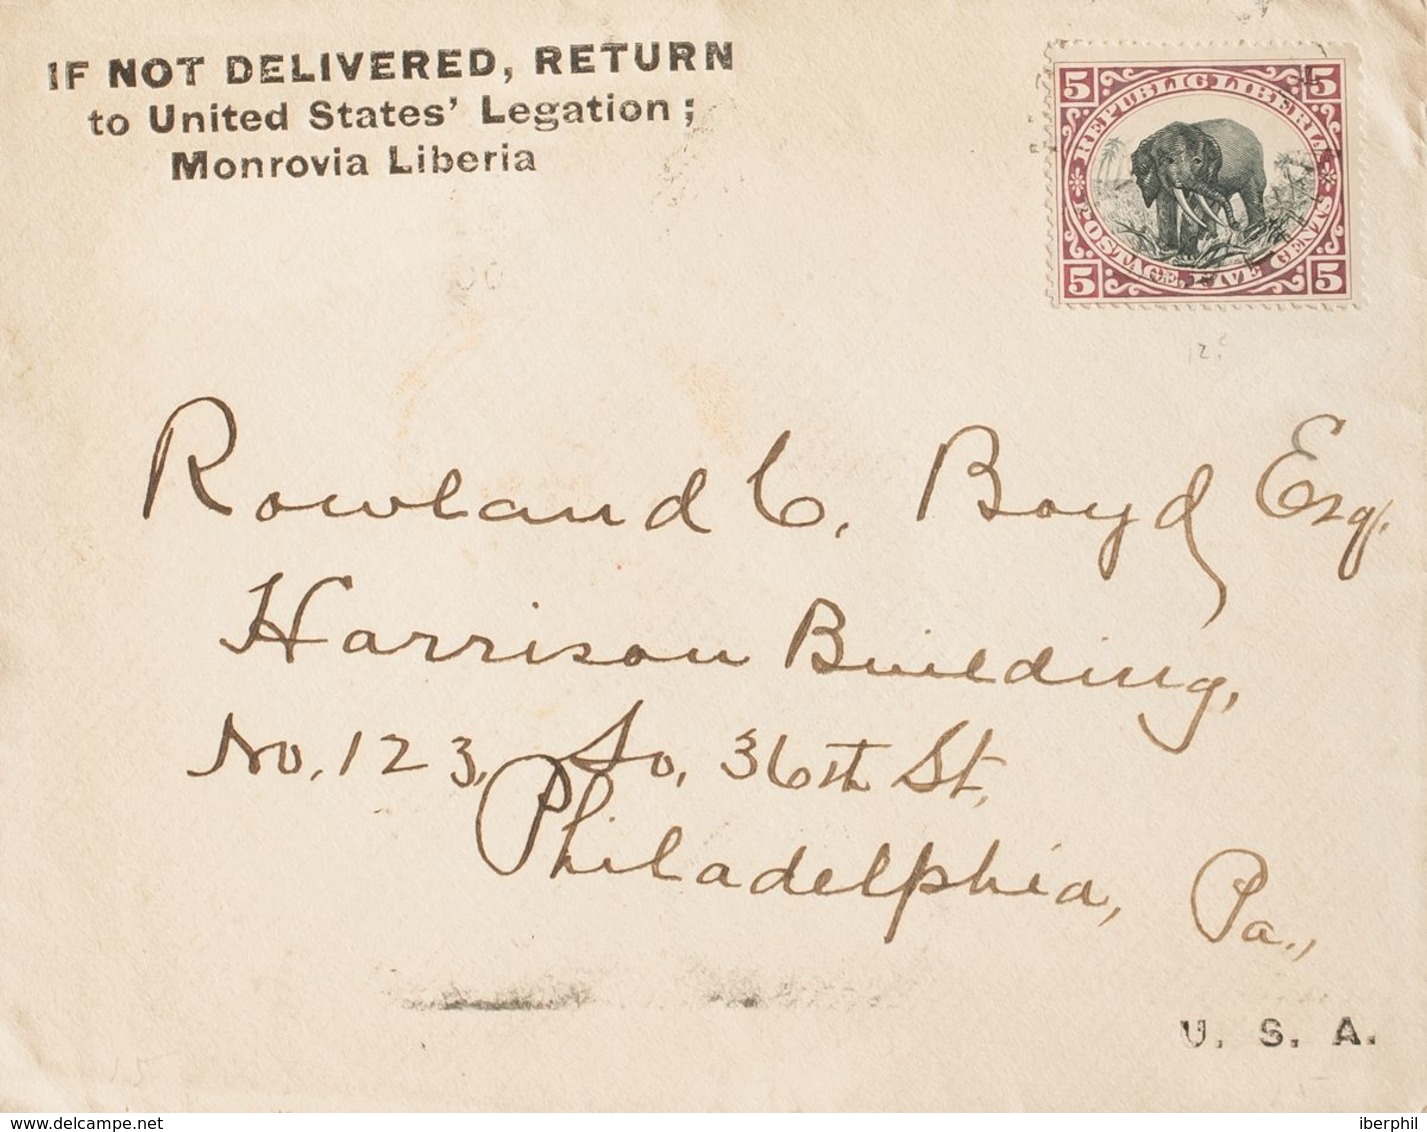 IF NOT DELIVERED, RETURN
to United States' Legation;
Monrovia Liberia
5 5
REPUBLIC LIBERIA
POSTAGE, FIVE CENTS
5 5
Rowland C. Boyd Esq.
Harrison Building,
No. 123, So. 36th St.
Philadelphia, Pa.,
U. S. A.
delcampe.net
iberphil